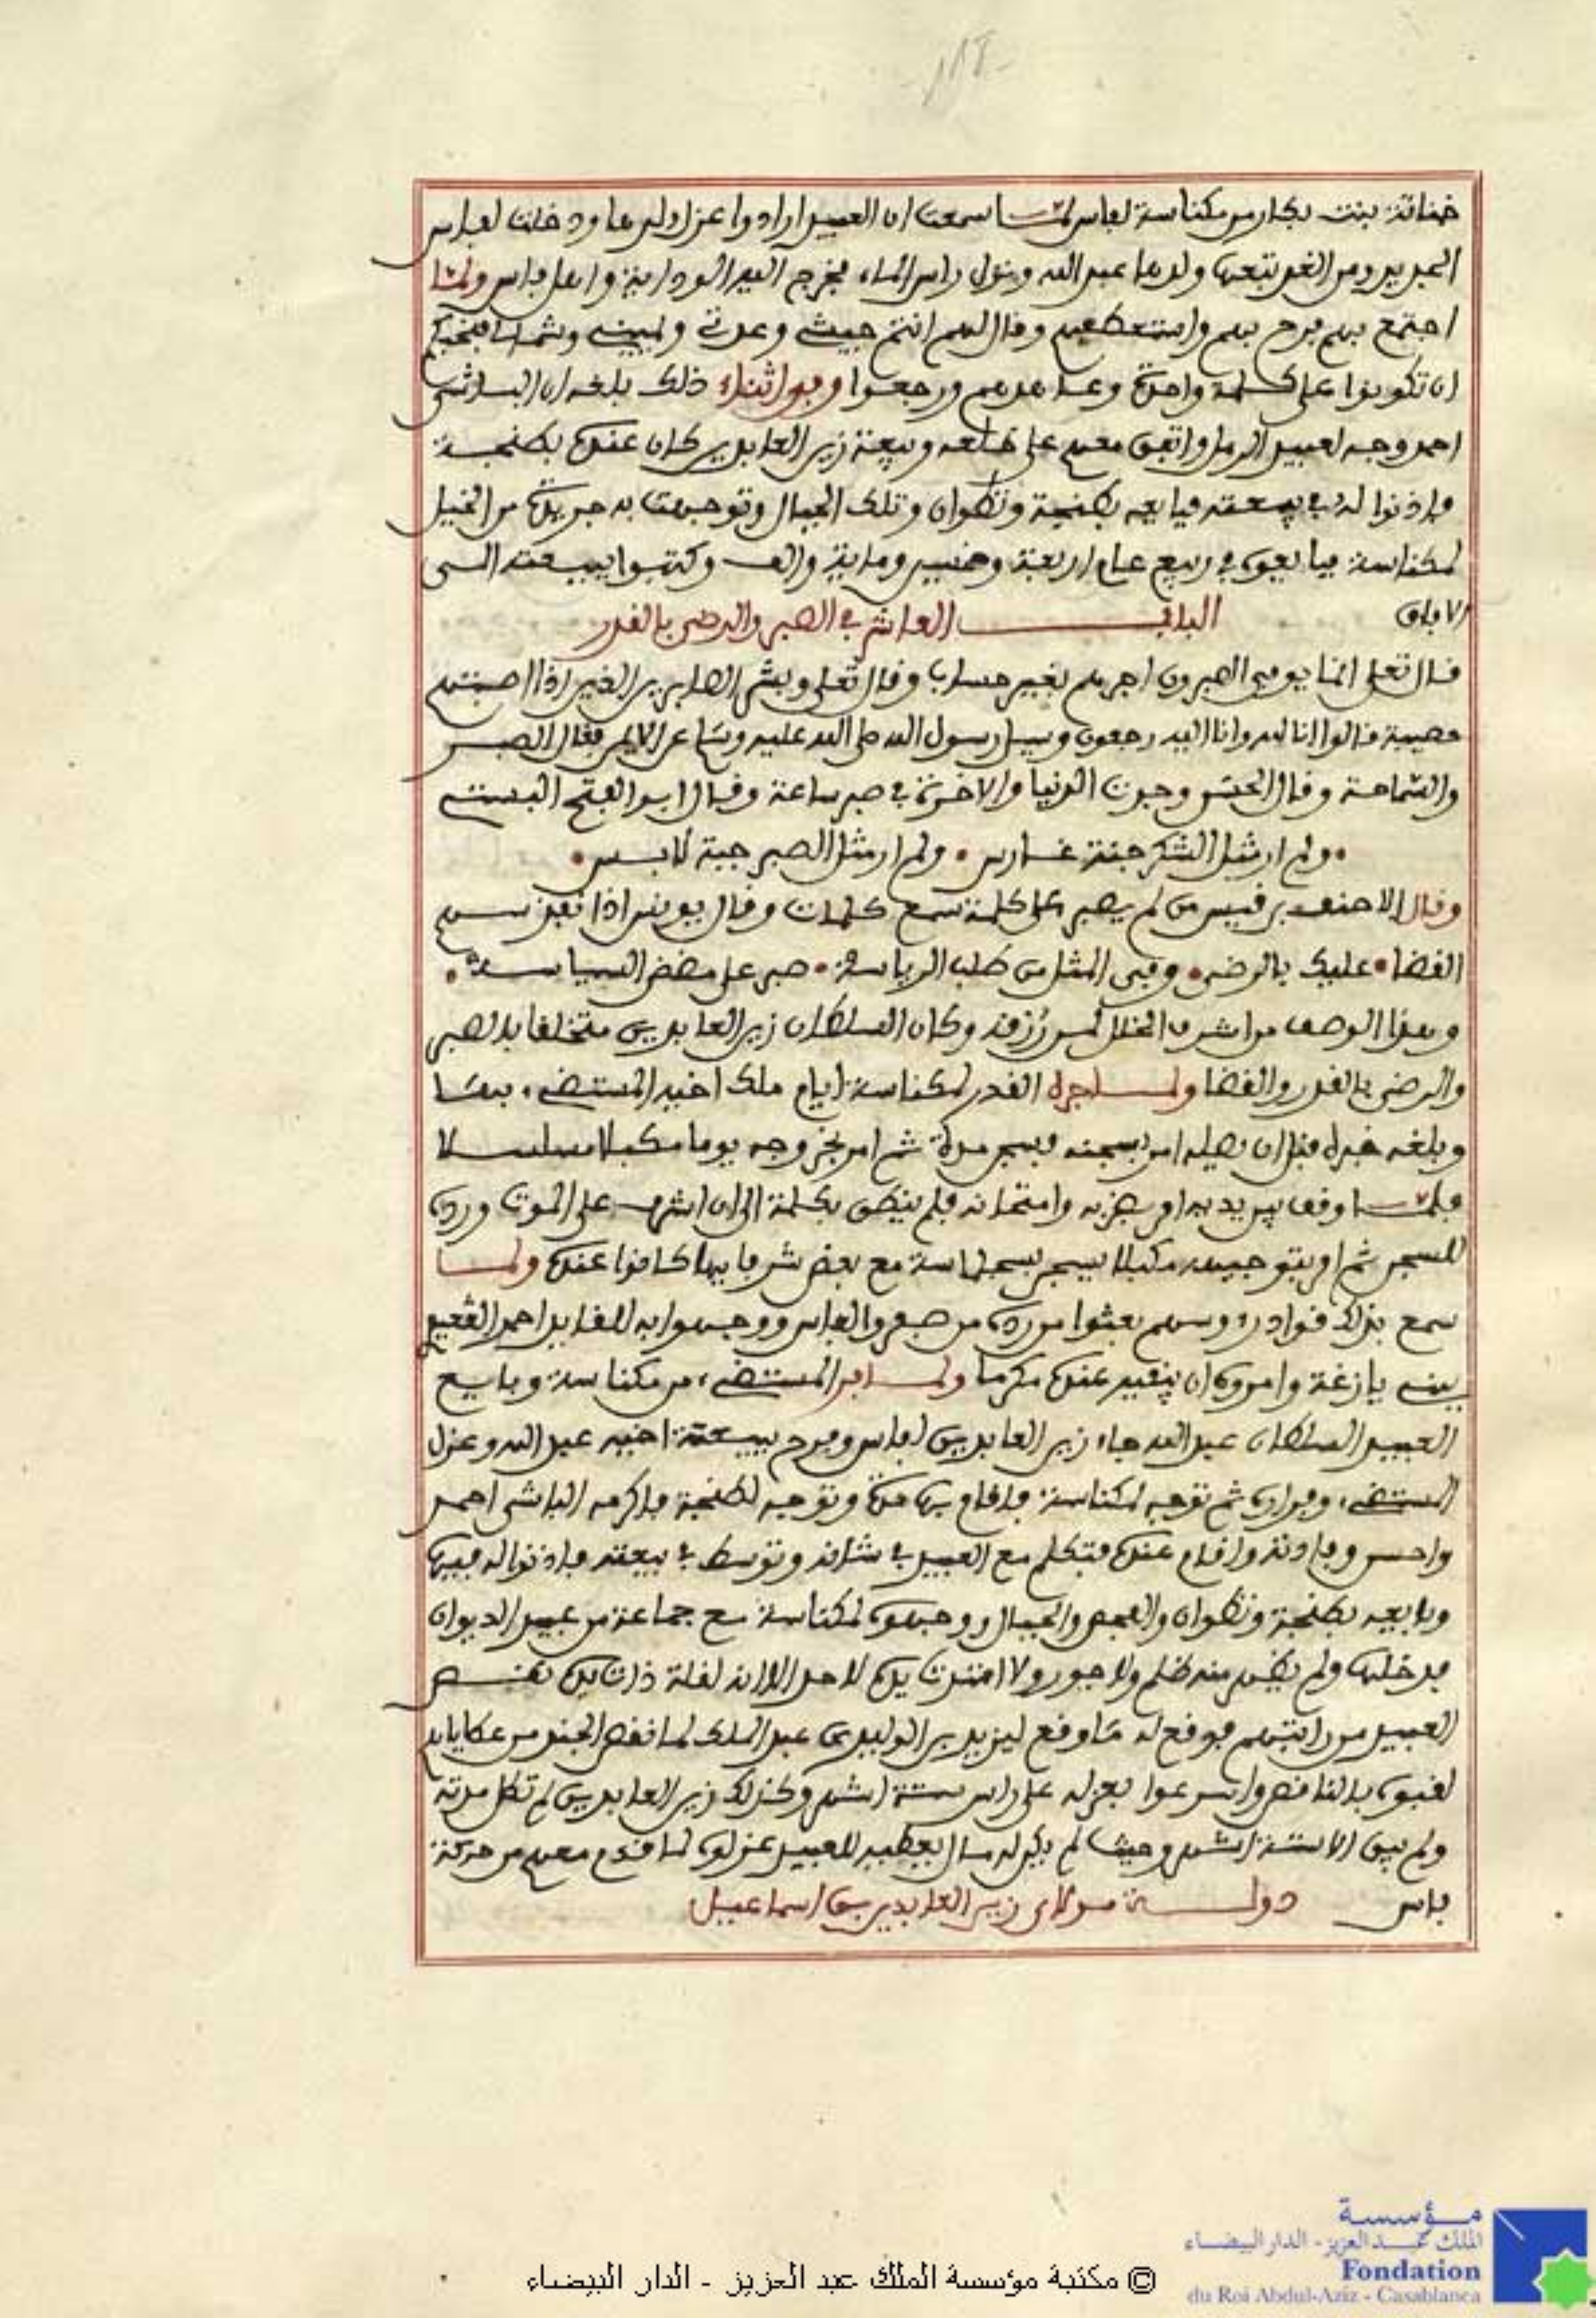 خناثة بنت بكار من مكناسة لفاس لما سمعت ان العبيد ارادوا عزل ولدها ودخلت لفاس
الجديد ومن الغد تبعها ولدها عبد الله ونزل راس الماء فخرج اليه الودايا واهل فاس ولما
اجتمع بهم فرح بهم واستعطفهم وقال لهم انتم جيشي وعدتي ويميني وشمالي
ان تكونوا على كلمة واحدة وعاهدهم ورجعوا وفي اثناء ذلك بلغه ان الباشى
احمد وجه لعبيد الرمل واتفق معهم على خلعه وبيعة زين العابدين كان عنده بطنجة
فاذنوا له في بيعته فبايعه بطنجة وتطوان وتلك الجبال وتوجهت به جريدة من الخيل
لمكناسة فبايعوه في ربيع عام اربعة وخمسين وماية والف وكتبوا ببيعته الى
الافاق الباب العاشر في الصبر والرضى بالقدر
قال تعلى انما يوفى الصبرون اجرهم بغير حساب وقال تعلى وبشر الصابرين الذين اذا اصبتهم
مصيبة قالوا انا لله وانا اليه رجعون وسيل رسول الله صلى الله عليه وسلم عن الايمن فقال الصبر
والسماحة وقال الحسن وجدت الدنيا والاخرة في صبر ساعة وقال ابو الفتح البستي
ولم ار مثل الشكر جنة غارس ولم ار مثل الصبر جبة لابس
وقال الاحنف بن قيس من لم يصبر على كلمة سمع كلمات وقال يونس اذا نفذ سهم
القضا عليك بالرضى وفي المثل من طلب الرياسة صبر على مضض السياسة
وهذا الوصف من اشرف الخلال لمن رزقه وكان السلطان زين العابدين متخلقا بالصبر
والرضى بالقدر والقضا ولما جره القدر لمكناسة ايام ملك اخيه المستضيء بها
وبلغه خبره قبل ان يصله امر بسجنه فسجن مدة ثم امر بخروجه يوما مكبلا مسلسلا
فلما وقف بين يديه امر بضربه وامتحانه فلم ينطق بكلمة الى ان اشرف على الموت ورده
للسجن ثم امر بتوجيهه مكبلا يسجن بسجلماسة مع بعض شرفايها كانوا عنده ولما
سمع بذلك قواد رءوسهم بعثوا من رده من صفرو لفاس ووجهوا به للقايد احمد الكعيدي
ببني يازغة وامروه ان يبقيه عنده مكرما ولما فر المستضيء من مكناسة وبايع
العبيد السلطان عبد الله جاء زين العابدين لفاس وفرح ببيعة اخيه عبد الله وعزل
المستضيء وفراره ثم توجه لمكناسة فاقام بها مدة وتوجه لطنجة فاكرمه الباشى احمد
واحسن وفادته واقام عنده فتكلم مع العبيد في شانه وتوسط في بيعته فاذنوا له فيها
وبايعه بطنجة وتطوان والفحص والجبال ووجهوه لمكناسة مع جماعة من عبيد الديوان
فدخلها ولم يظهر منه ظلم ولا جور ولا امتدت يده لاحد الا انه لقلة ذات يده نقص
العبيد من راتبهم فوقع له ما وقع ليزيد بن الوليد بن عبد الملك لما نقص الجند من عطاياه
لقبوه بالناقص واسرعوا بعزله على راس ستة اشهر وكذلك زين العابدين لم تطل مدته
ولم يبق الا ستة اشهر وحيث لم يكن له مال يعطيه للعبيد عزلوه لما قدم معهم من حركة
فاس دولة مولاي زين العابدين بن اسماعيل
© مكتبة مؤسسة الملك عبد العزيز - الدار البيضاء
مؤسسة
الملك عبد العزيز - الدار البيضاء
Fondation
du Roi Abdul-Aziz - Casablanca